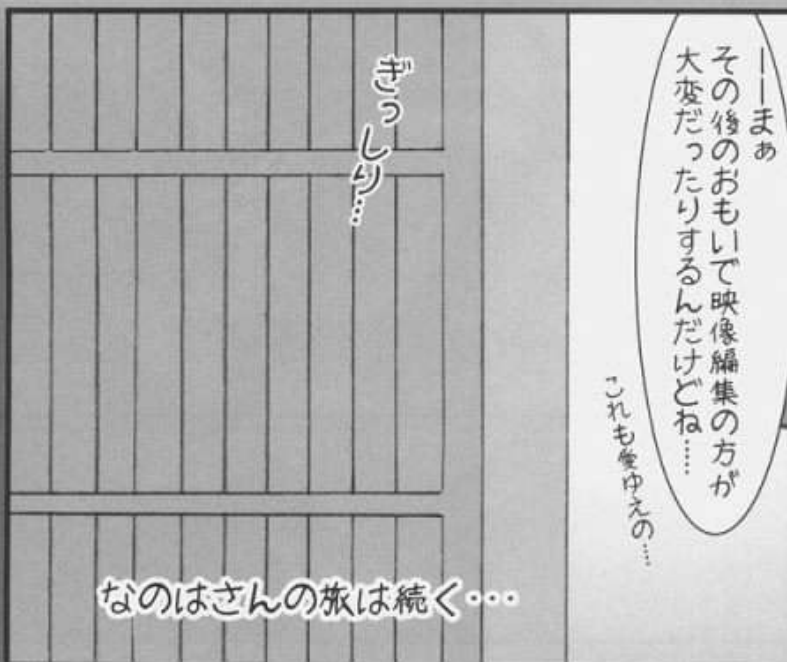 ――まぁ
その後のおもいで映像編集の方が
大変だったりするんだけどね……
これも愛ゆえの…
ぎっしり…
なのはさんの旅は続く…